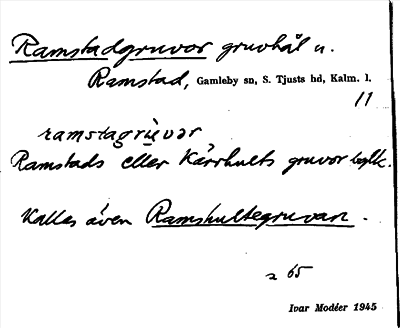 Ramstadgruvor gruvhål u.
Ramstad, Gamleby sn, S. Tjusts hd, Kalm. l.
11
ramstagrùvər
Ramstads eller Kärrhults gruvor
Kallas även Ramshultegruvan.
65
Ivar Modéer 1945